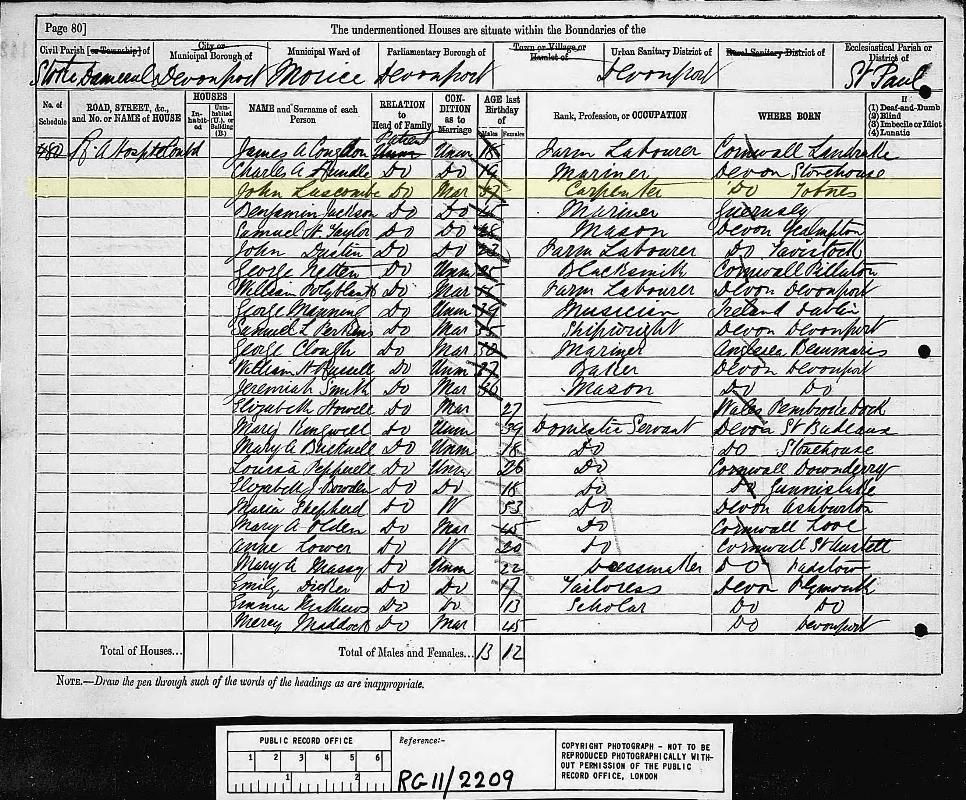 Page 80] The undermentioned Houses are situate within the Boundaries of the
Civil Parish [or Township] of City or Municipal Borough of Municipal Ward of Parliamentary Borough of Town or Village or Hamlet of Urban Sanitary District of Rural Sanitary District of Ecclesiastical Parish or District of
Stoke Damerel Devonport Morice Devonport Devonport St Paul
No. of Schedule ROAD, STREET, &c., and No. or NAME of HOUSE HOUSES In-habited Unin-habited (U.), or Building (B.) NAME and Surname of each Person RELATION to Head of Family CON-DITION as to Marriage AGE last Birthday of Males Females Rank, Profession, or OCCUPATION WHERE BORN If (1) Deaf-and-Dumb (2) Blind (3) Imbecile or Idiot (4) Lunatic
480 R. A Hospital Patient James A Congdon Unm 18 Farm Labourer Cornwall Landrake
Charles A Rundle Do Do 19 Mariner Devon Stonehouse
John Luscombe Do Mar Carpenter Do Totnes
Benjamin Jackson Do Do Mariner Guernsey
Samuel H Taylor Do Do Mason Devon Yealmpton
John Do Do Farm Labourer Do Tavistock
George Netten Do Unm Blacksmith Cornwall Pillaton
William Polyblank Do Mar Farm Labourer Devon Devonport
George Manning Do Unm Musician Ireland Dublin
Samuel L Perkins Do Mar Shipwright Devon Devonport
George Clough Do Mar Mariner Anglesea Beaumaris
William H Russell Do Unm Devon Devonport
Jeremiah Smith Do Mar Mason Do Do
Elizabeth Howell Do Mar 27 Wales Pembroke Dock
Mary Kingwell Do Unm 39 Domestic Servant Devon St Budeaux
Mary A Bucknell Do Unm 18 Do Do Stonehouse
Louisa Do Unm 26 Do Cornwall Downderry
Elizabeth J Bowden Do Do 18 Do Do Gunnislake
Maria Shepherd Do W 53 Do Devon Ashburton
Mary A Olden Do Mar 45 Do Cornwall Looe
Anne Lower Do W Do Cornwall St Austell
Mary A Massy Do Unm 22 Dressmaker Do Padstow
Emily Do Do 17 Tailoress Devon Plymouth
Emma Mathews Do Do 13 Scholar Do Do
Mercy Maddock Do Mar 45 Do Devonport
Total of Houses... Total of Males and Females... 13 12
NOTE.—Draw the pen through such of the words of the headings as are inappropriate.
PUBLIC RECORD OFFICE
1 2 3 4 5 6
1 2
Reference:-
RG 11/2209
COPYRIGHT PHOTOGRAPH - NOT TO BE
REPRODUCED PHOTOGRAPHICALLY WITH-
OUT PERMISSION OF THE PUBLIC
RECORD OFFICE, LONDON